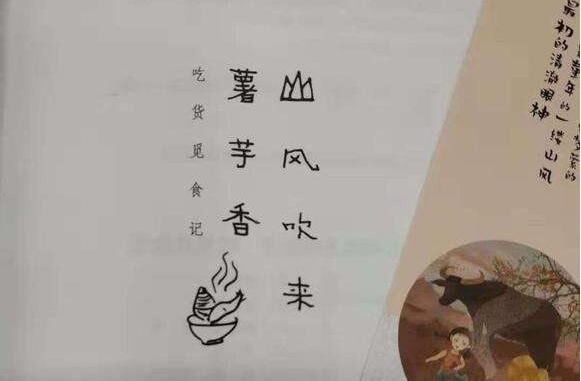 山风吹来
薯芋香
吃货觅食记
童年的一缕山风
最初的清澈眼神